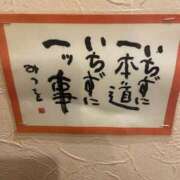 いちずに
一本道
いちずに
一ッ事
みつを